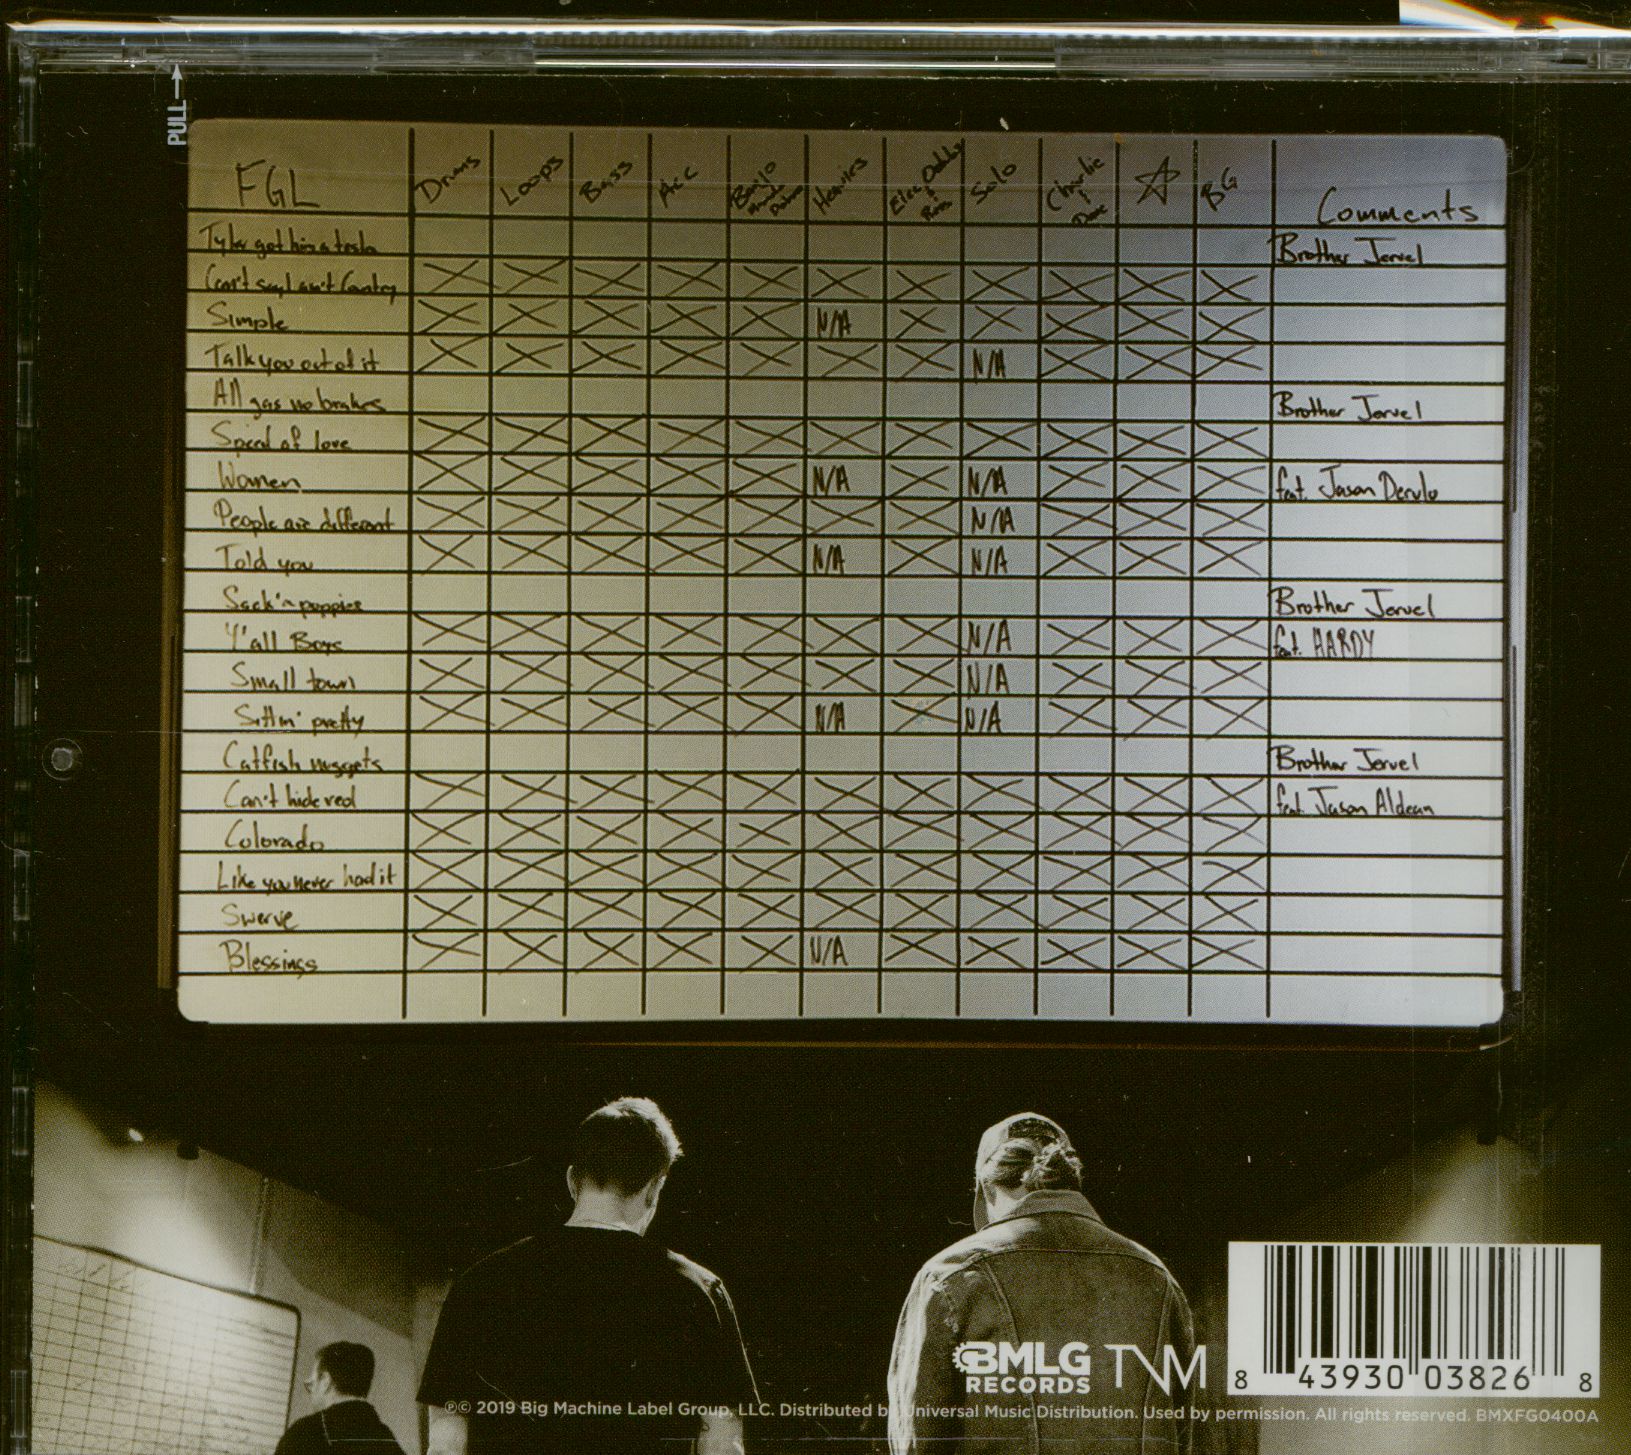 PULL
FGL Drums Loops Bass Acc Banjo Heavies Elec Solo Charlie BG Comments
Tyler got him a tesla Brother Jervel
Can't say I ain't Country
Simple N/A
Talk you out of it N/A
All gas no brakes Brother Jervel
Speed of love
Women N/A N/A feat. Jason Derulo
People are different N/A
Told you N/A N/A
Sack'a puppies Brother Jervel
Y'all Boys N/A feat. HARDY
Small town N/A
Sittin' pretty N/A N/A
Catfish nuggets Brother Jervel
Can't hide red feat. Jason Aldean
Colorado
Like you never had it
Swerve
Blessings N/A
BMLG
RECORDS
8 43930 03826 8
℗© 2019 Big Machine Label Group, LLC. Distributed by Universal Music Distribution. Used by permission. All rights reserved. BMXFG0400A